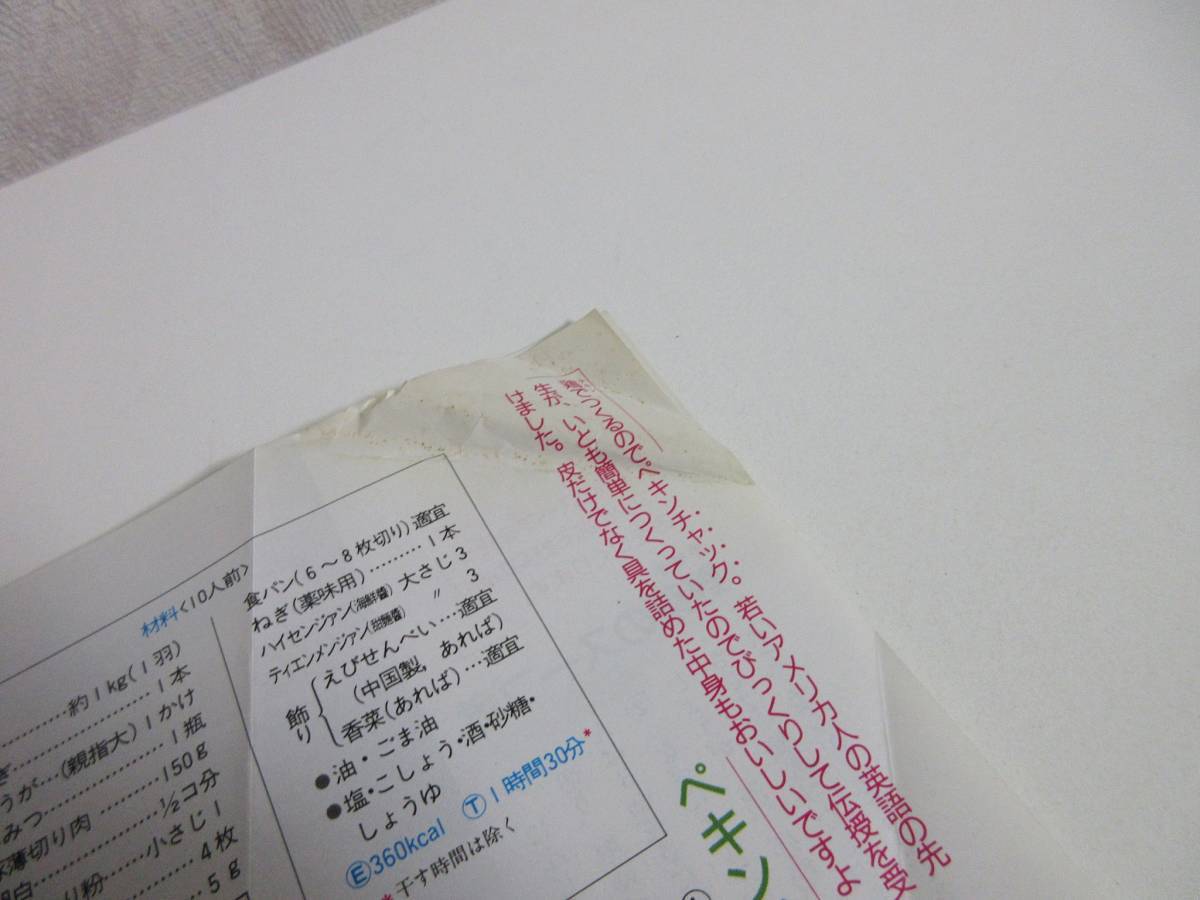 鶏でつくるので〝ペキンチャック〟。若いアメリカ人の英語の先
生が、いとも簡単につくっていたのでびっくりして伝授を受
けました。皮だけでなく具を詰めた中身もおいしいですよ
ペキン
材料<10人前>
……約1kg(1羽)
……1本
うが…(親指大)1かけ
みつ……1瓶
薄切り肉……150g
白……½コ分
り粉……小さじ1
……4枚
……5g
食パン(6～8枚切り)適宜
ねぎ(薬味用)………1本
ハイセンジァン(海鮮醬)大さじ3
ティエンメンジァン(甜麵醬) 〃 3
飾り
えびせんべい…適宜
(中国製、あれば)
香菜(あれば)…適宜
●油・ごま油
●塩・こしょう・酒・砂糖・
しょうゆ
Ⓔ360kcal Ⓣ1時間30分*
*干す時間は除く